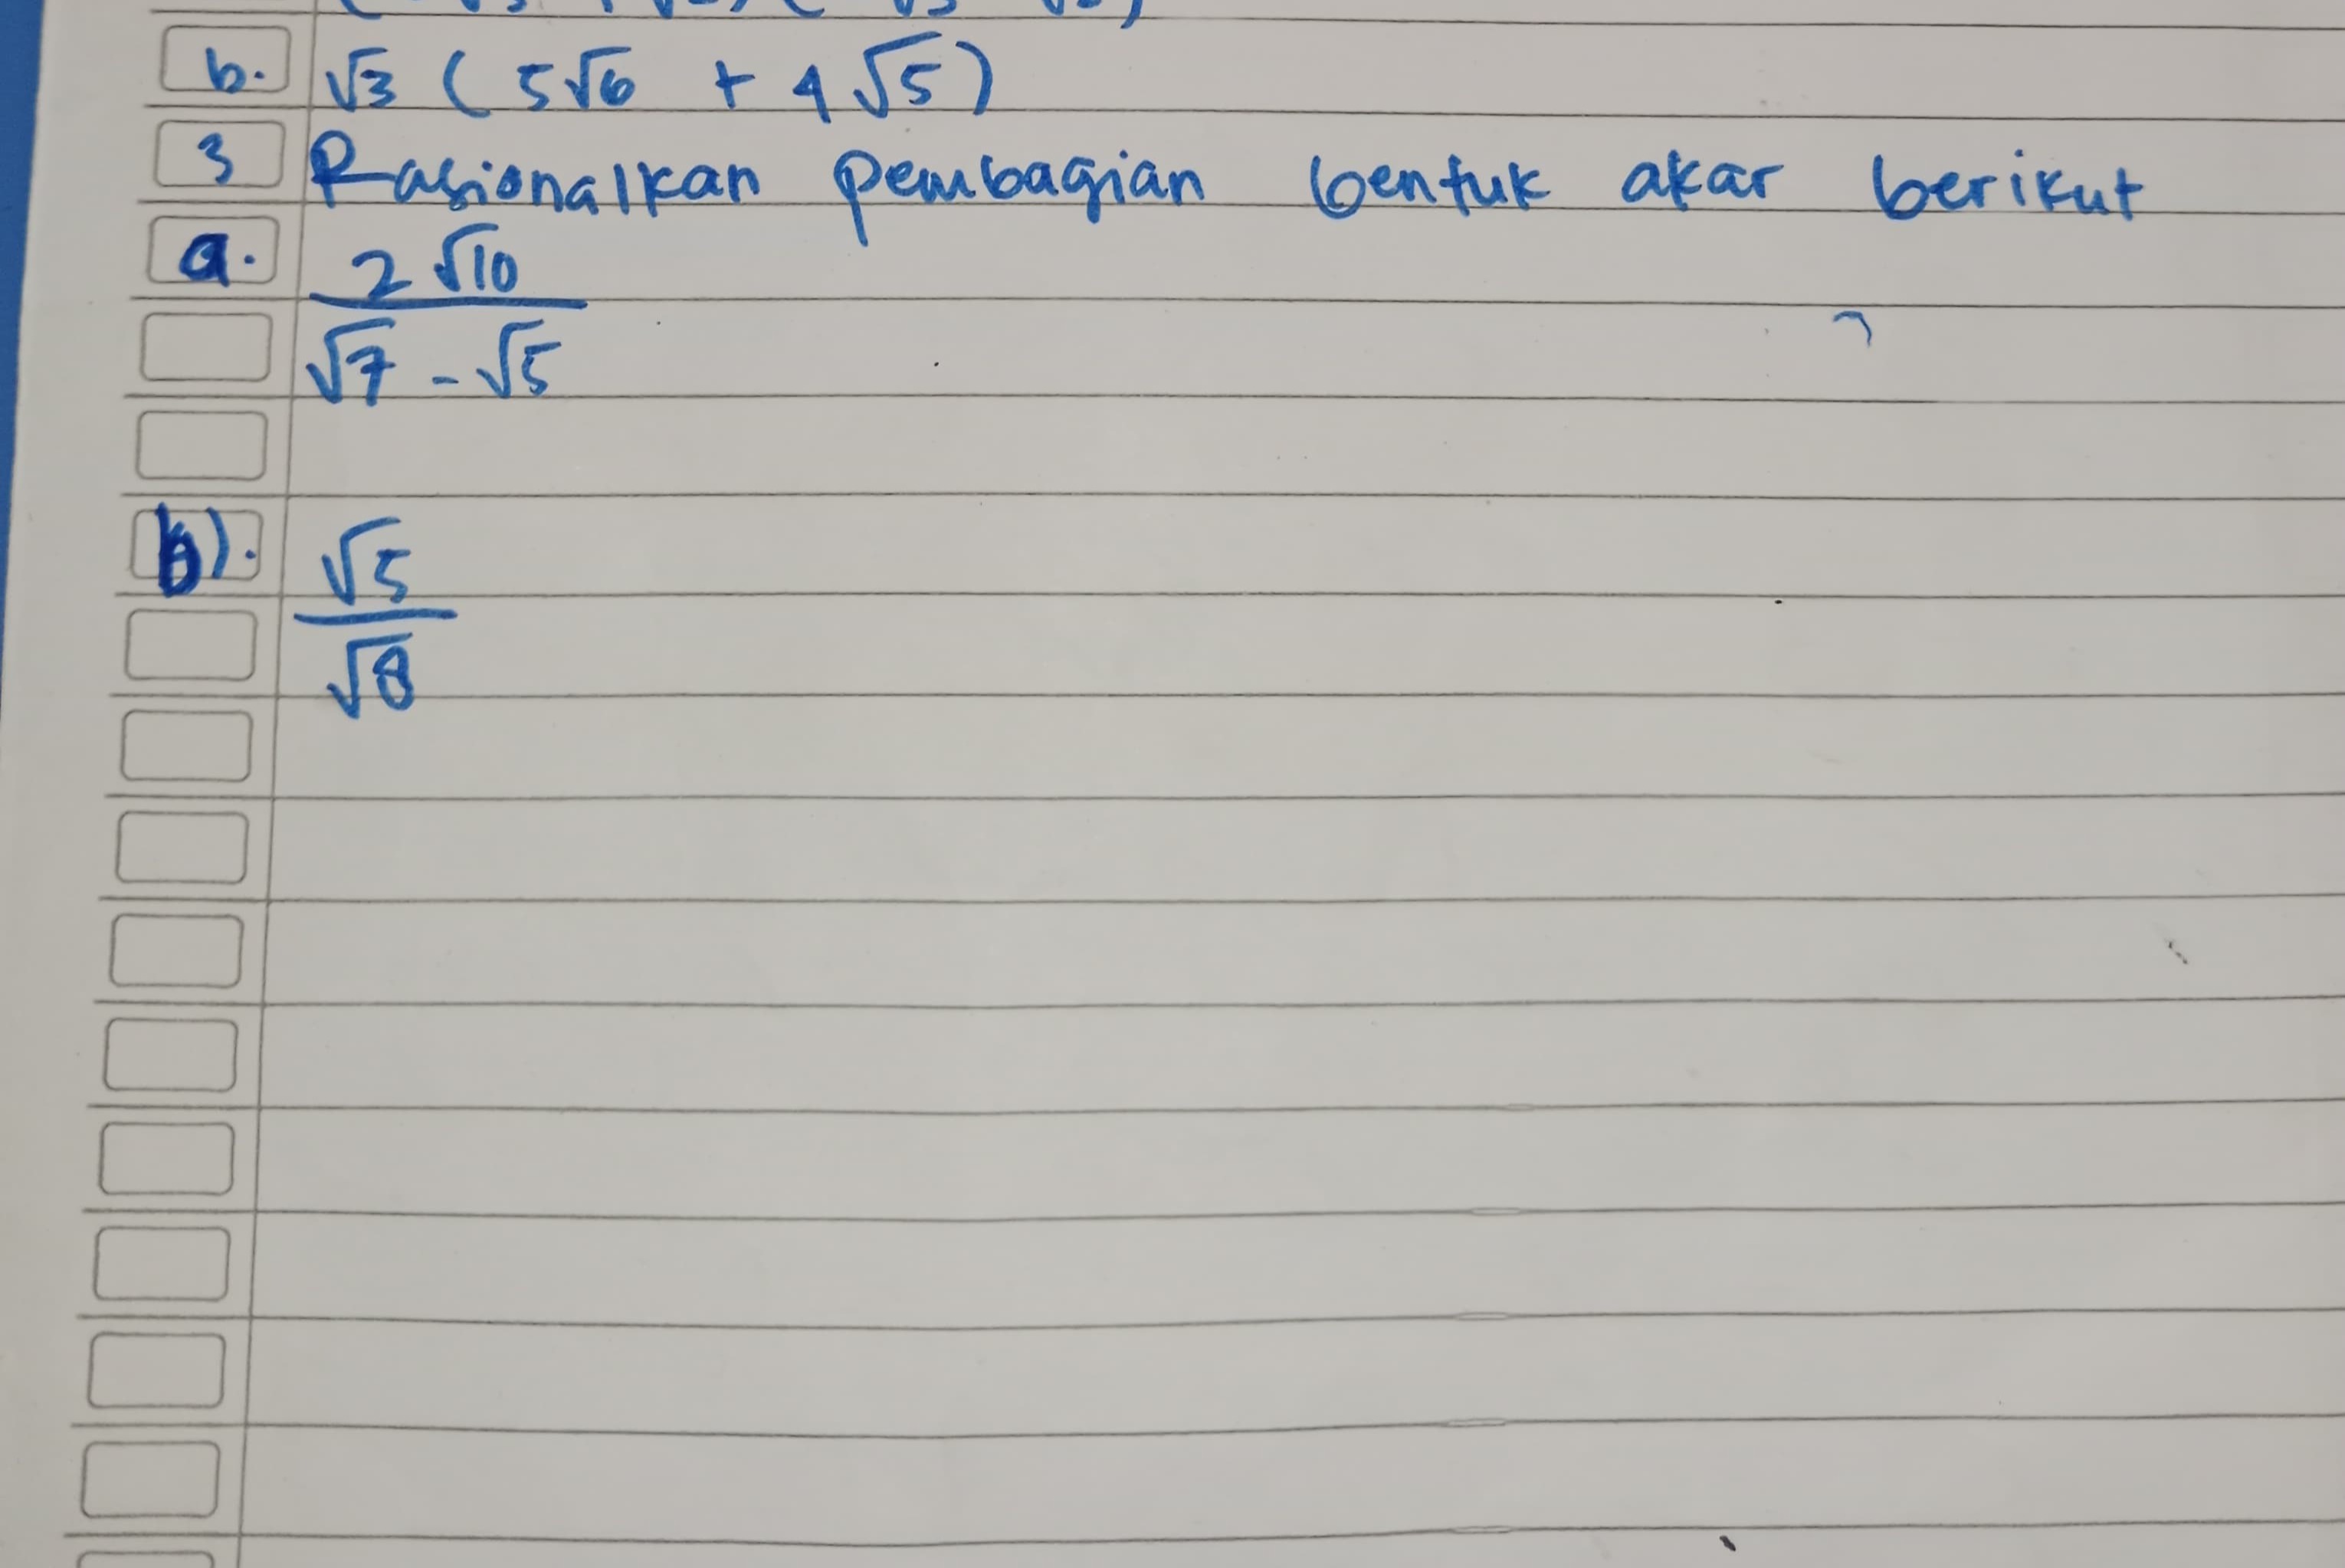 b. √3 ( 5√6 + 4√5 )
3 Rasionalkan pembagian bentuk akar berikut
a. 2√10
√7 - √5
b). √5
√8